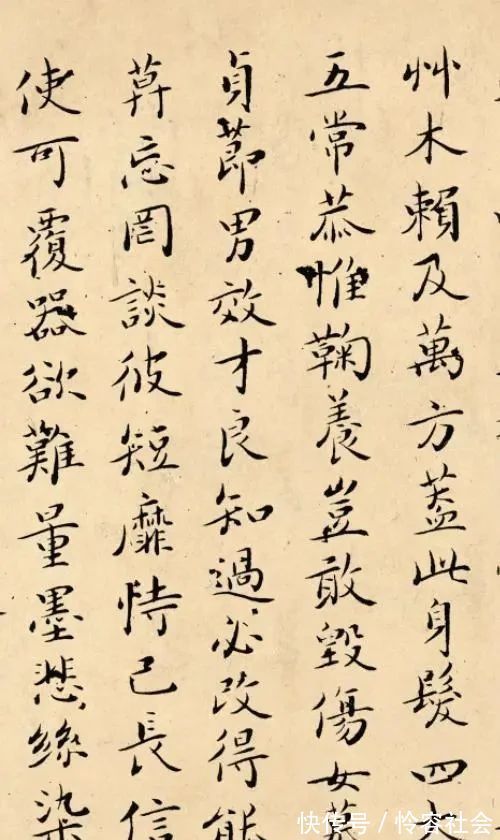 艸木賴及萬方蓋此身髮四大
五常恭惟鞠養豈敢毀傷女慕
貞莭男效才良知過必改得能
莫忘罔談彼短靡恃己長信
使可覆器欲難量墨悲絲染
快传号/怜容社会